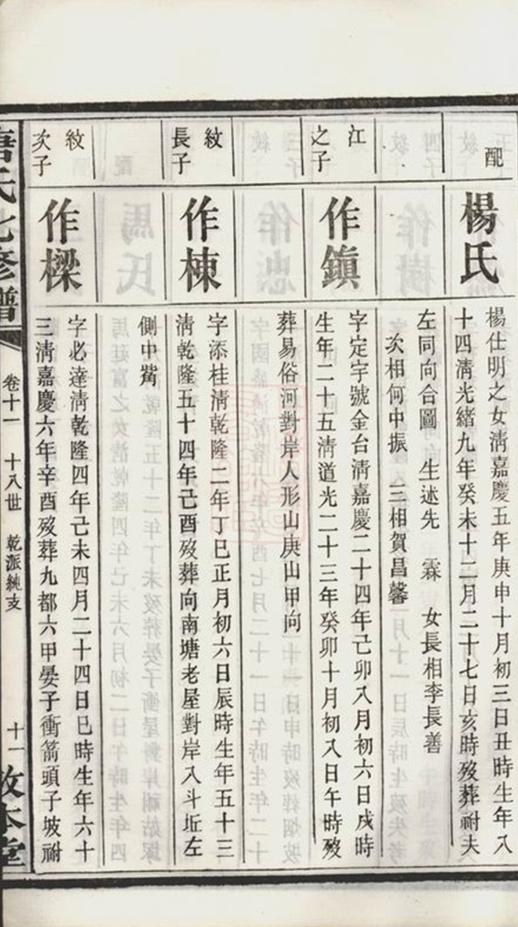 配
楊氏
楊仕明之女淸嘉慶五年庚申十月初三日丑時生年八
十四淸光緒九年癸未十二月二十七日亥時歿葬祔夫
左同向合圖　生述先　霖　女長相李長善
次相何中振　三相賀昌馨
江
之子
作鎭
字定宇號金台淸嘉慶二十四年己卯八月初六日戌時
生年二十五淸道光二十三年癸卯十月初八日午時歿
葬易俗河對岸人形山庚山甲向
紋
長子
作棟
字添桂淸乾隆二年丁巳正月初六日辰時生年五十三
淸乾隆五十四年己酉歿葬向南塘老屋對岸八斗坵左
側中觜
紋
次子
作樑
字必達淸乾隆四年己未四月二十四日巳時生年六十
三淸嘉慶六年辛酉歿葬九都六甲晏子衝箭頭子坡祔
唐氏七修譜
卷十一　十八世　乾派純支
十一
敦本堂